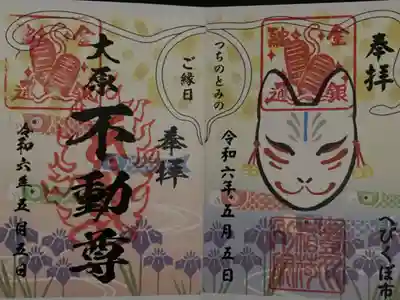 奉拝
へびくぼ市
令和六年五月五日
つちのとみの
ご縁日
奉拝
大原
不動尊
令和六年五月五日
金
銀
融
通
金
融
通